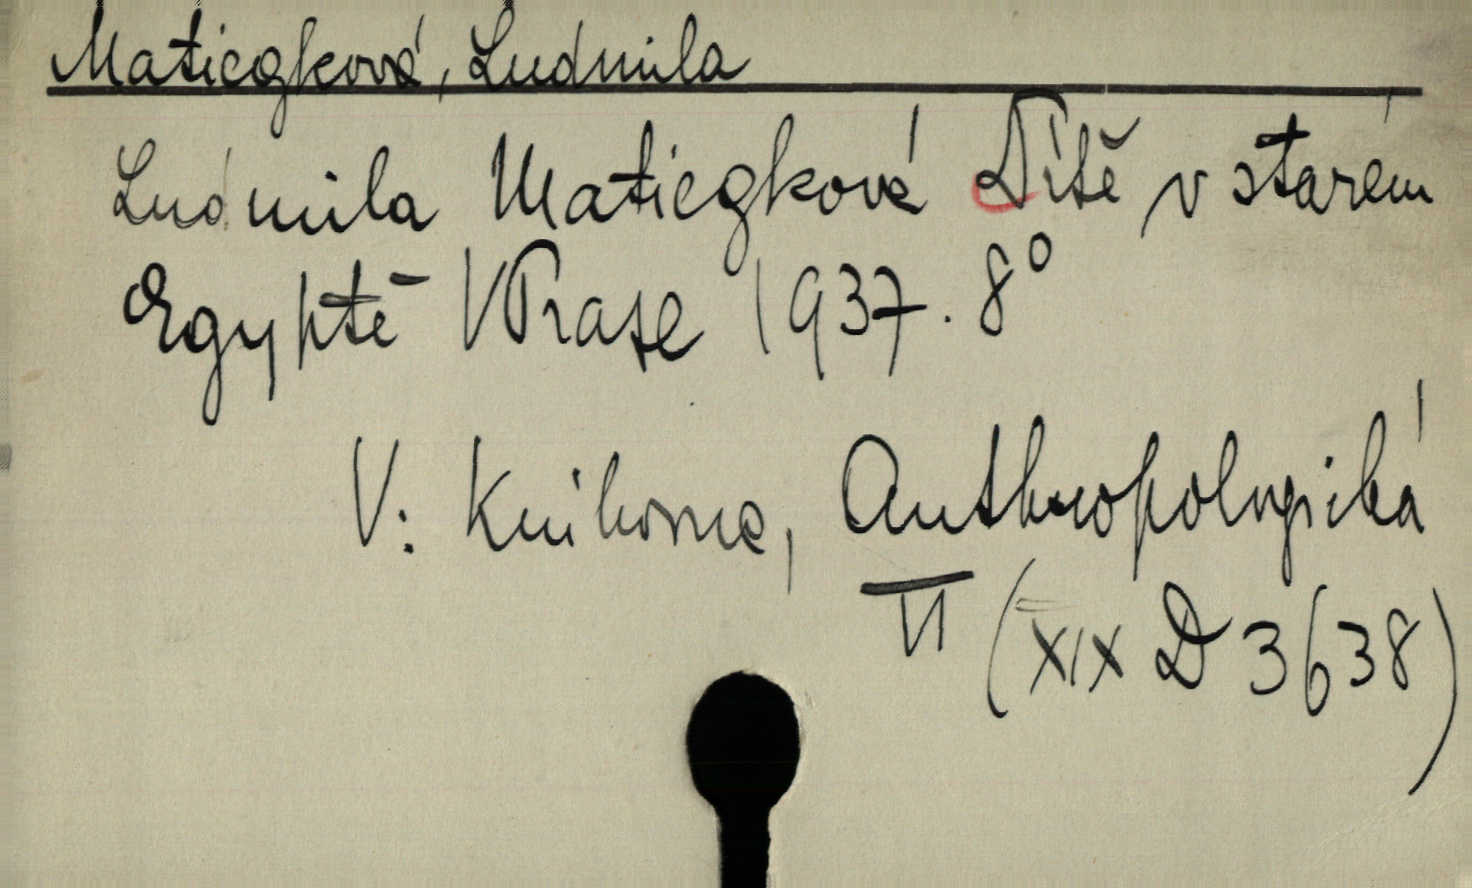 Matiegková, Ludmila
Ludmila Matiegková Dítě v starém
Egyptě V Praze 1937. 8°
V: Knihovna, Anthropologická
VI (XIX D 3638)